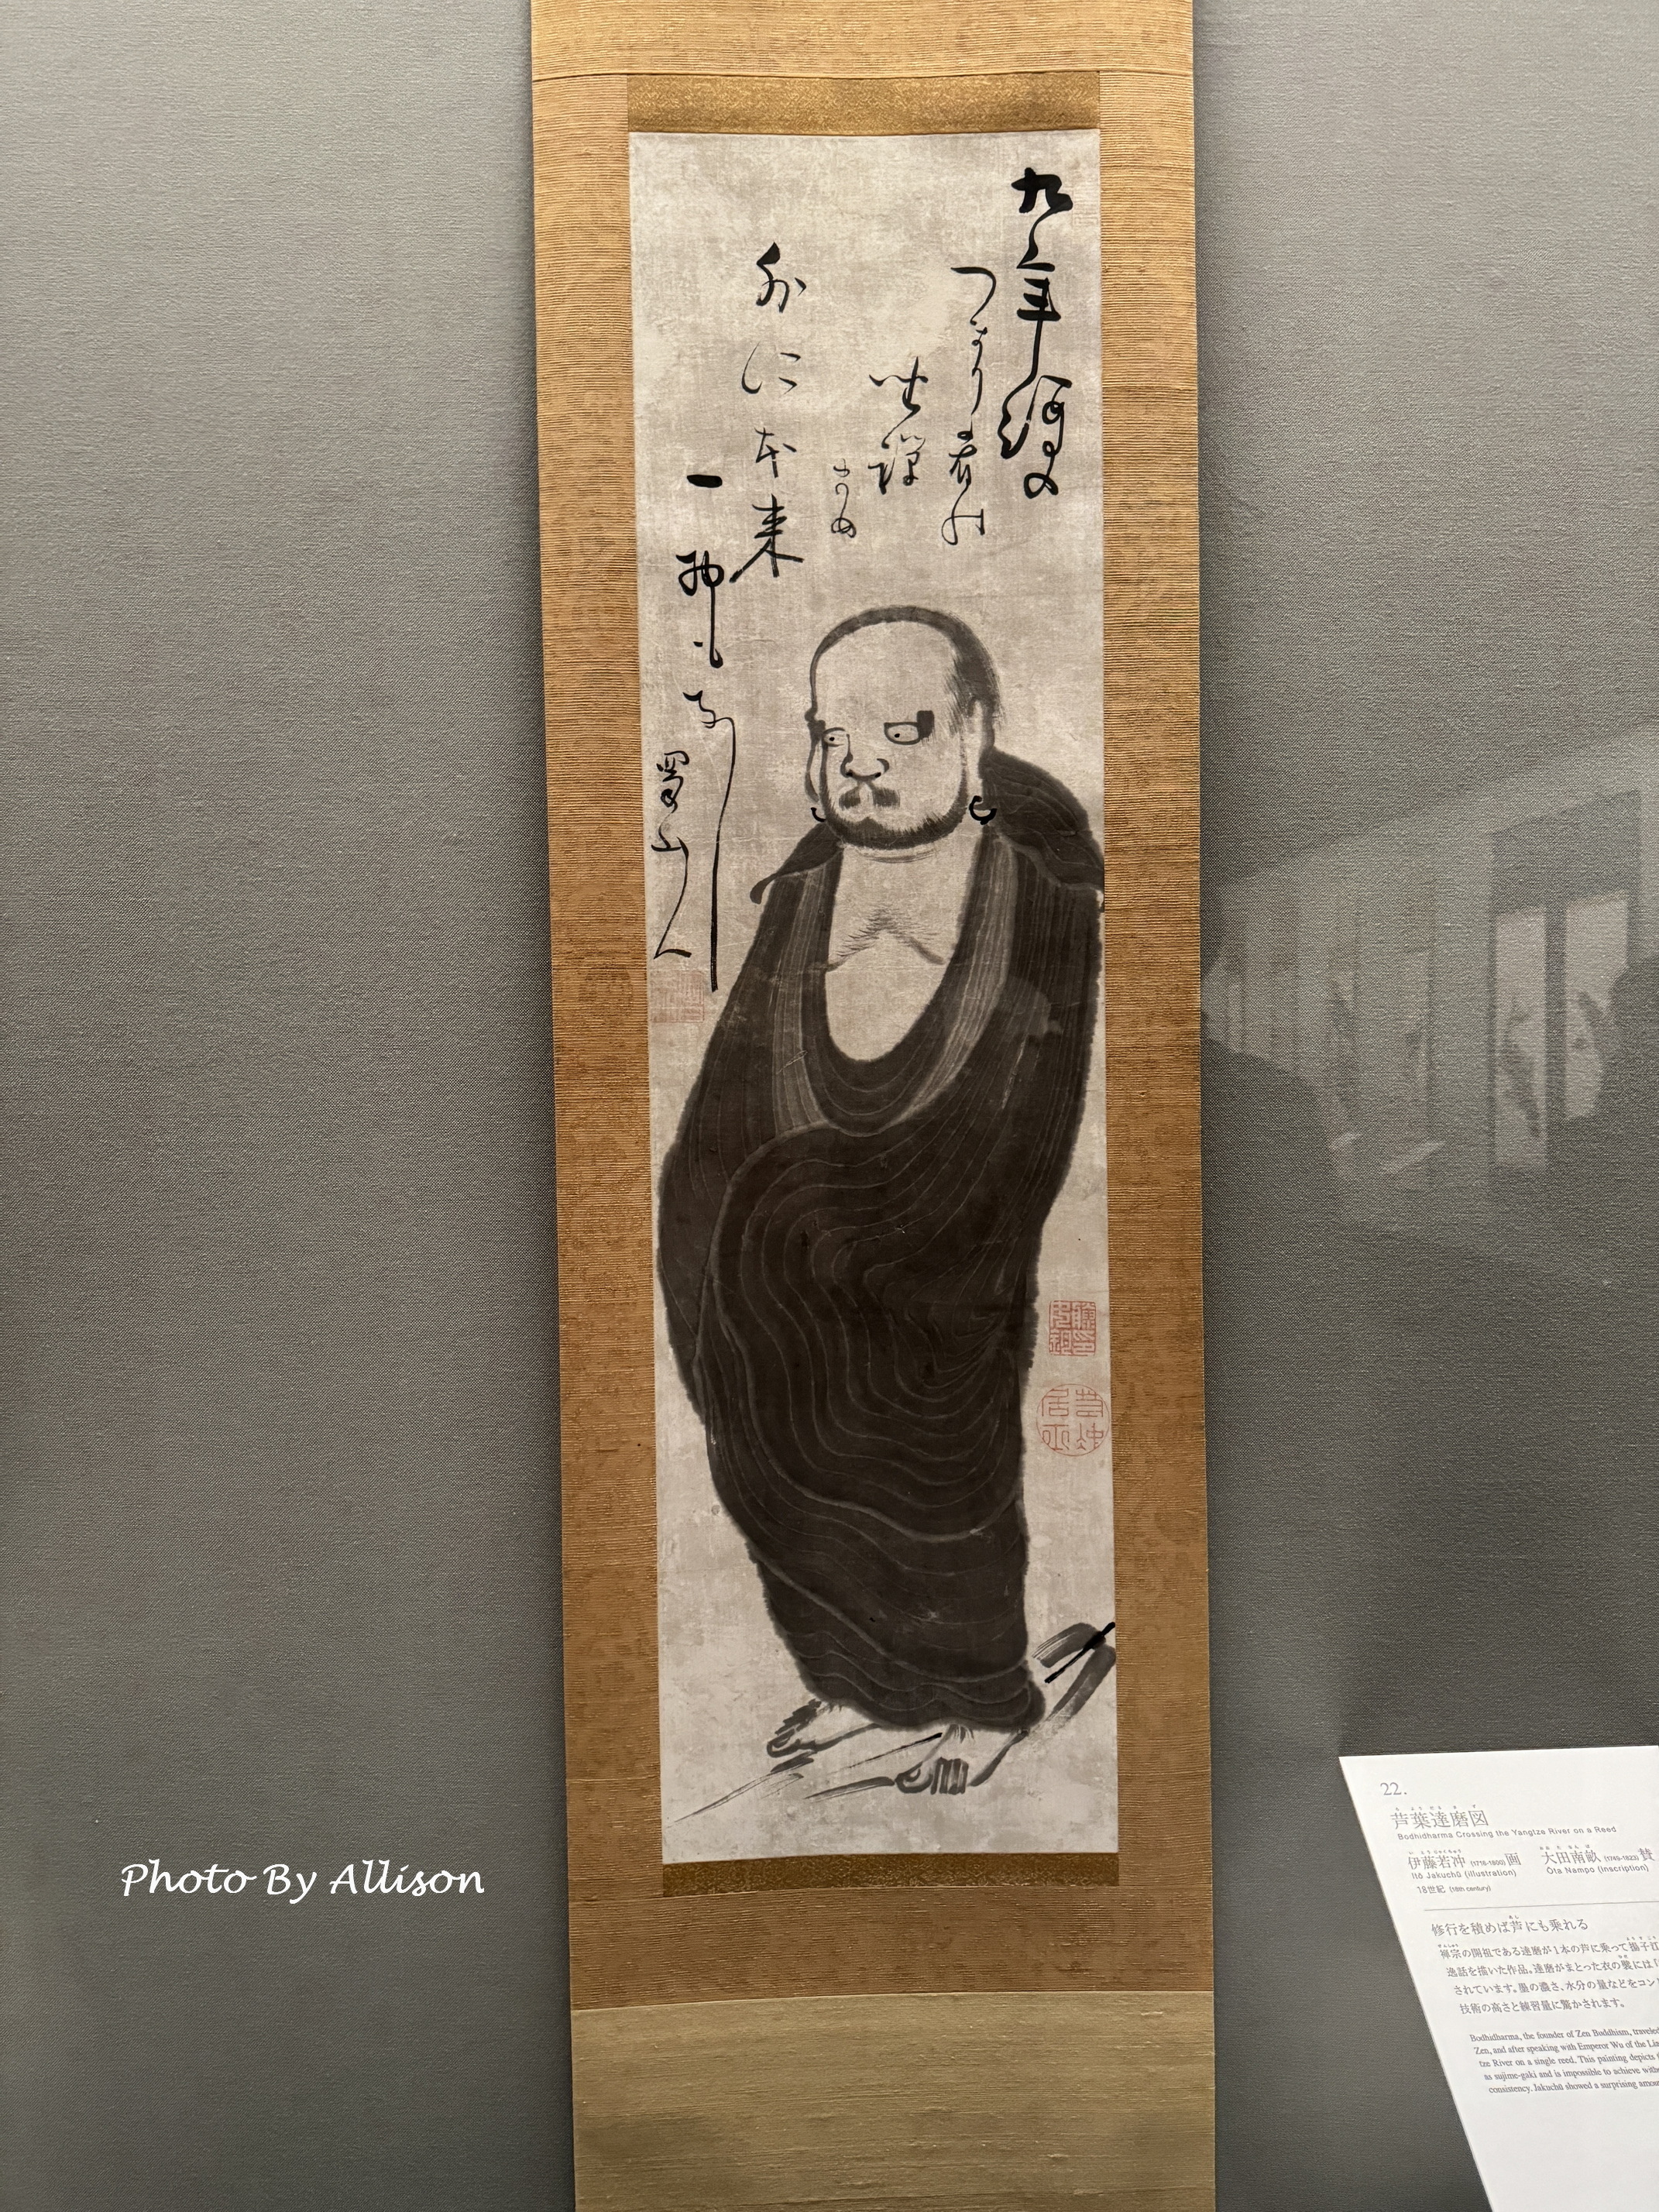 九年酒の
つまり肴の
坐禅
まめ
外に本来
一物もなし
蜀山人
若冲居士
22.
芦葉達磨図
Bodhidharma Crossing the Yangtze River on a Reed
伊藤若冲 (1716-1800) 画 大田南畝 (1749-1823) 賛
Itō Jakuchū (illustration) Ōta Nampo (inscription)
18世紀 (18th century)
修行を積めば芦にも乗れる
禅宗の開祖である達磨が1本の芦に乗って揚子江
逸話を描いた作品。達磨がまとった衣の襞には「
されています。墨の濃さ、水分の量などをコン
技術の高さと練習量に驚かされます。
Bodhidharma, the founder of Zen Buddhism, traveled
Zen, and after speaking with Emperor Wu of the Lia
tze River on a single reed. This painting depicts
as sujime-gaki and is impossible to achieve with
consistency. Jakuchū showed a surprising amou
Photo By Allison